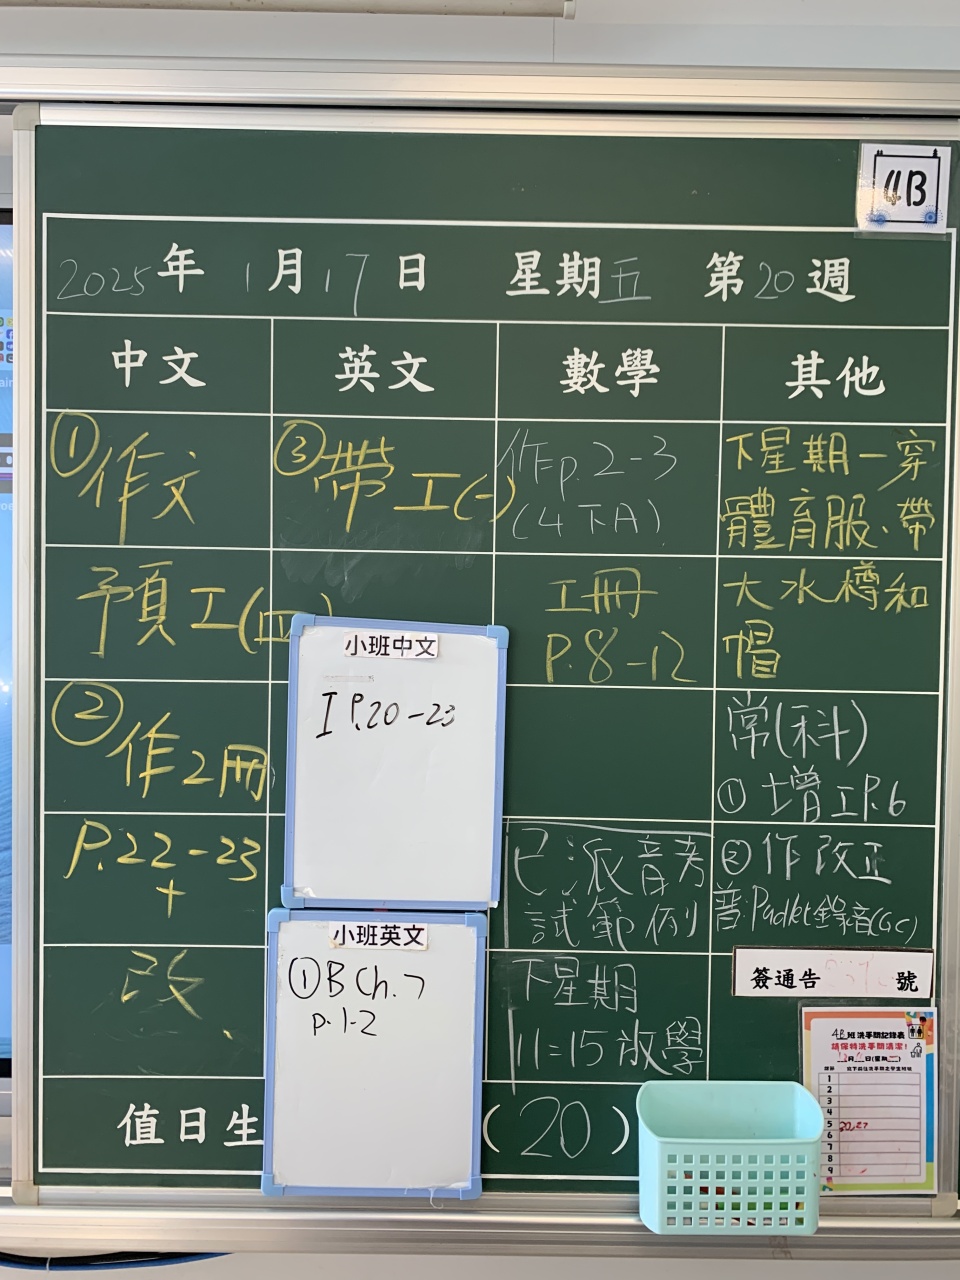 4B
2025年 1月17日 星期五 第20週
中文 英文 數學 其他
①作文
預工(四)
②作2冊
P.22-23
+
改
③帶工(一)
作:p.2-3
(4下A)
工冊
P.8-12
已派音考
試範例
下星期
11:15放學
下星期一穿
體育服、帶
大水樽和
帽
常(科)
①增工P.6
②作改正
普:Padlet錄音(GC)
小班中文
I P.20-23
小班英文
①B Ch.7
p.1-2
簽通告 號
4B班洗手間記錄表
請保持洗手間清潔!
1
2
3
4
5 20,27
6
7
8
9
值日生 (20)